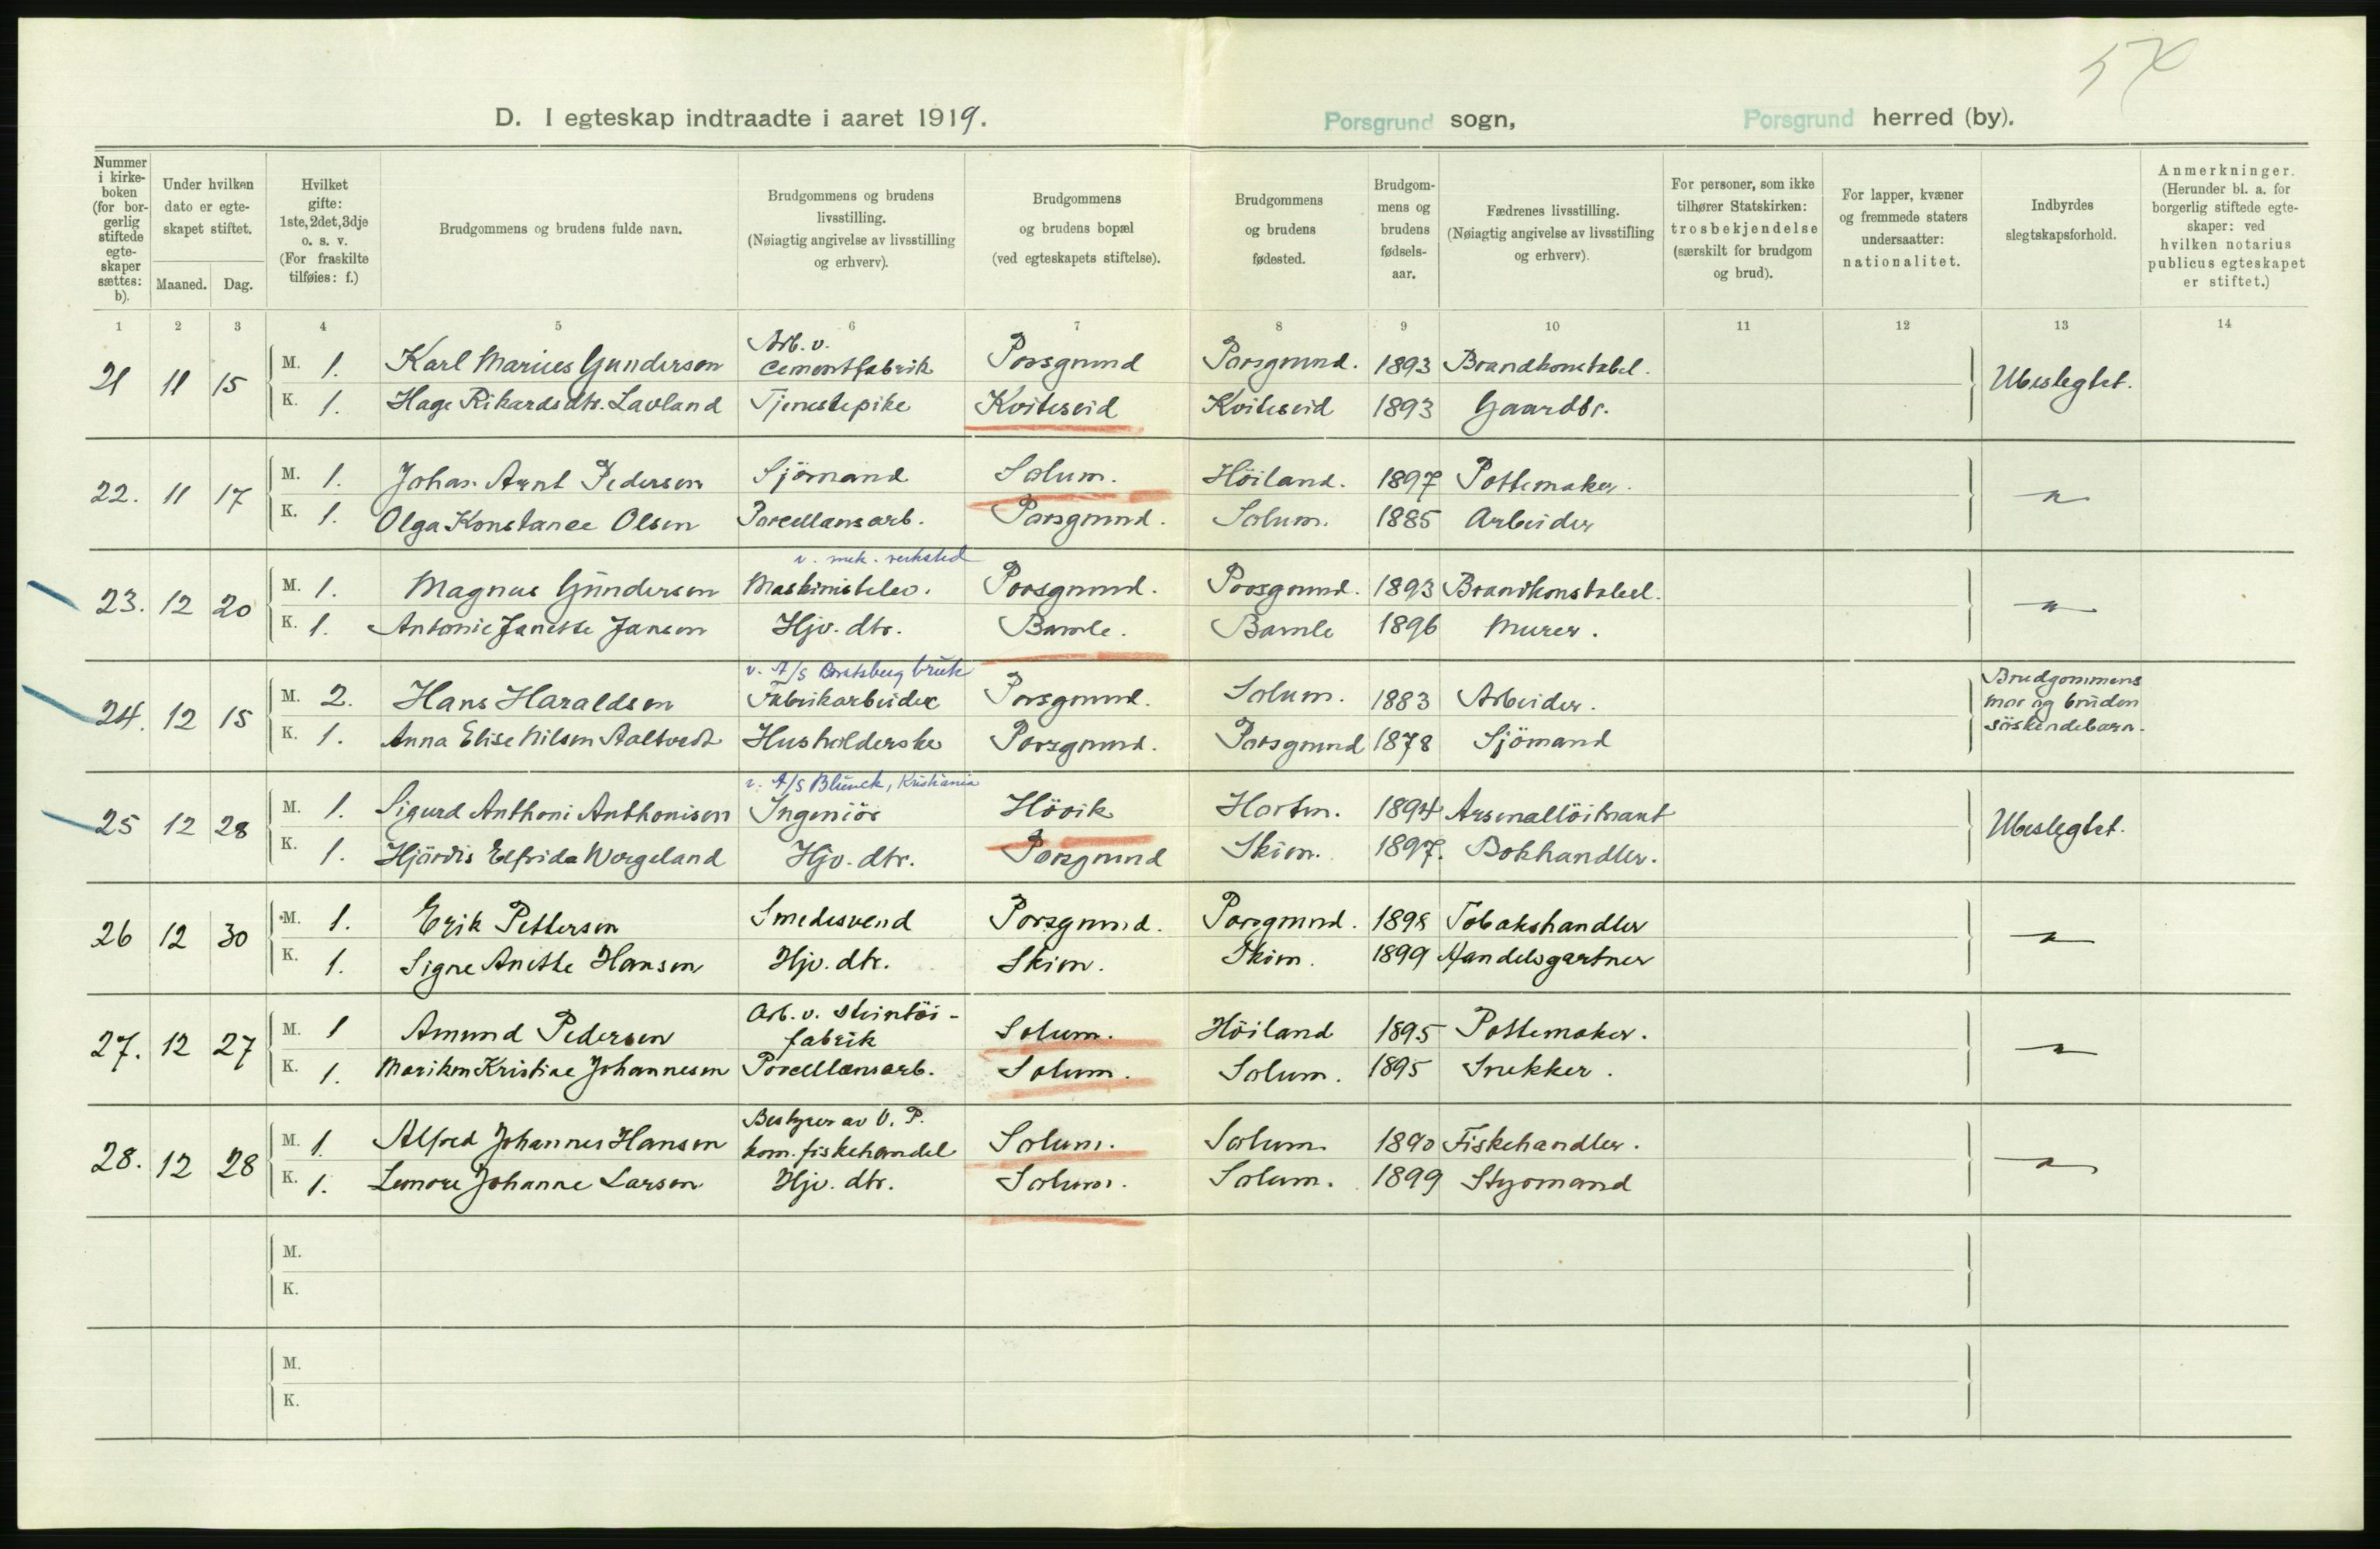 D. I egteskap indtraadte i aaret 1919. Porsgrund sogn, Porsgrund herred (by).
Nummer i kirkeboken (for borgerlig stiftede egteskaper sættes: b).
Under hvilken dato er egteskapet stiftet.
Maaned. Dag.
Hvilket gifte: 1ste, 2det, 3dje o. s. v. (For fraskilte tilføies: f.)
Brudgommens og brudens fulde navn.
Brudgommens og brudens livsstilling. (Nøiagtig angivelse av livsstilling og erhverv).
Brudgommens og brudens bopæl (ved egteskapets stiftelse).
Brudgommens og brudens fødested.
Brudgommens og brudens fødselsaar.
Fædrenes livsstilling. (Nøiagtig angivelse av livsstilling og erhverv).
For personer, som ikke tilhører Statskirken: trosbekjendelse (særskilt for brudgom og brud).
For lapper, kvæner og fremmede staters undersaatter: nationalitet.
Indbyrdes slegtskapsforhold.
Anmerkninger. (Herunder bl. a. for borgerlig stiftede egteskaper: ved hvilken notarius publicus egteskapet er stiftet.)
1 2 3 4 5 6 7 8 9 10 11 12 13 14
21 11 15 M. 1. Karl Marius Gundersen Arb. v. Cementfabrik Porsgrund Porsgrund. 1893 Brandkonstabel. Ubeslegtet.
K. 1. Hage Rikardsdtr. Lavland Tjenestepike Kviteseid Kviteseid 1893 Gaardbr.
22. 11 17 M. 1. Johan Arnt Pedersen Sjömand Solum. Höiland. 1897 Pottemaker. "
K. 1. Olga Konstance Olsen Porcellansarb. Porsgrund. Solum. 1885 Arbeider
23. 12 20 M. 1. Magnus Gundersen v. mek. verksted Maskinistelev. Porsgrund. Porsgrund. 1893 Brandkonstabel. "
K. 1. Antonie Janette Jansen Hjv. dtr. Bamle. Bamle 1896 Murer.
24. 12 15 M. 2. Hans Haraldsen v. A/S Bratsberg bruk Fabrikarbeider Porsgrund. Solum. 1883 Arbeider. Brudgommens mor og bruden söskendebarn.
K. 1. Anna Elise Nilsen Aaltvedt Husholderske Porsgrund. Porsgrund 1878 Sjömand
25 12 28 M. 1. Sigurd Anthoni Anthonisen v. A/S Blunck, Kristiania Ingeniör Hövik Horten. 1894 Arsenallöitnant Ubeslegtet.
K. 1. Hjördis Elfrida Wergeland Hjv. dtr. Porsgrund Skien. 1897. Bokhandler.
26 12 30 M. 1. Erik Pettersen Smedesvend Porsgrund. Porsgrund. 1898 Tobakshandler "
K. 1. Signe Anette Hansen Hjv. dtr. Skien. Skien. 1899 Handelsgartner
27. 12 27 M. 1 Amund Pedersen Arb. v. stentöifabrik Solum. Höiland 1895 Pottemaker. "
K. 1. Mariken Kristine Johannesen Porcellansarb. Solum. Solum. 1895 Snekker.
28. 12 28 M. 1. Alfred Johannes Hansen Bestyrer av V. P. kom. fiskehandel Solum. Solum 1890 Fiskehandler. "
K. 1. Lenore Johanne Larsen Hjv. dtr. Solum. Solum. 1899 Styrmand
M.
K.
M.
K.